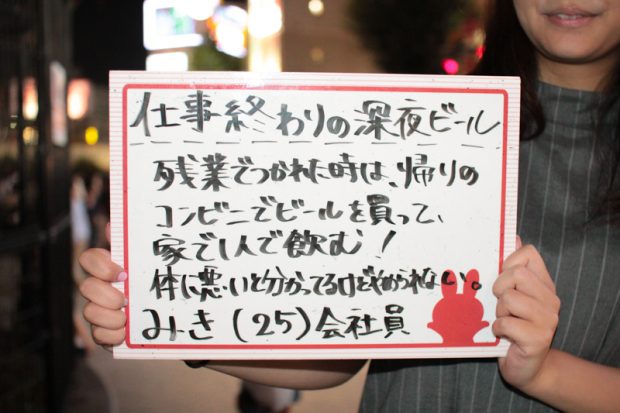 仕事終わりの深夜ビール
残業でつかれた時は、帰りの
コンビニでビールを買って、
家で1人で飲む!
体に悪いと分かってるけどやめられない。
みき(25)会社員